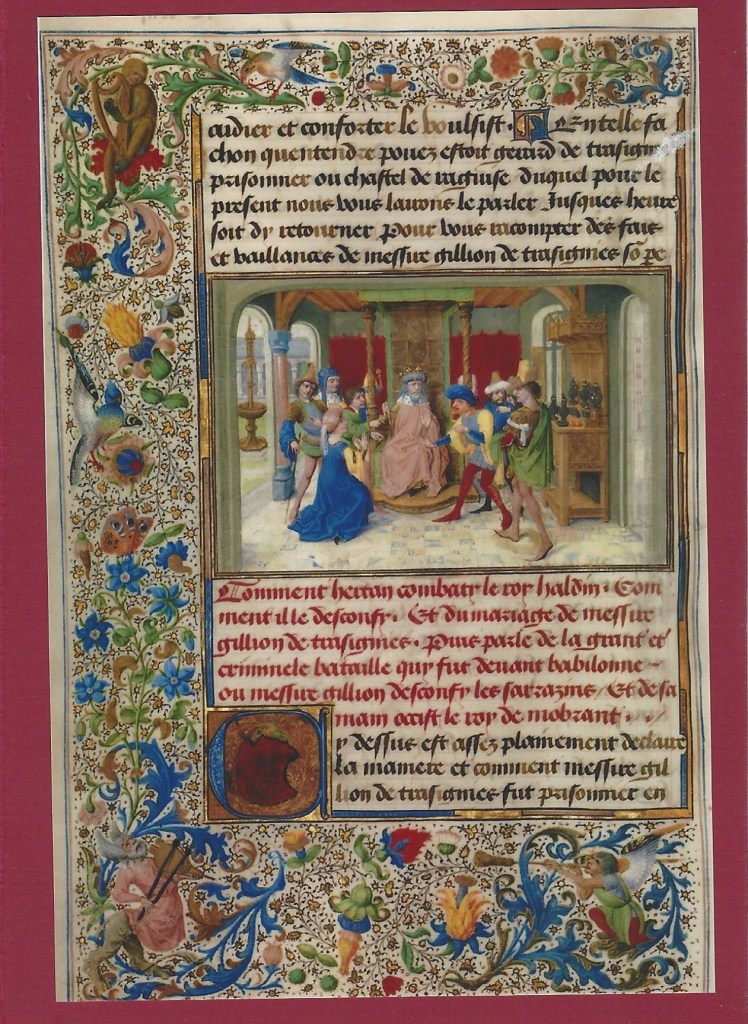 audier et conforter le voulsist. En telle fa
chon quentendre pouez estoit gerard de trasignies
prisonnier ou chastel de raguise duquel pour le
present nous vous lairons le parler Jusques heure
soit dy retourner pour vous racompter des fais
et vaillances de messire gillion de trasignies so pe
Comment hertan combaty le roy haldin. Com
ment il le desconfy. Et du mariage de messire
gillion de trasignies. Puis parle de la grant et
criminele bataille quy fut deuant babilonne
ou messire gillion desconfy les sarrazins / Et de sa
main occist le roy de mobrant.
Cy dessus est assez plainement declaire
la maniere et comment messire gil
lion de trasignies fut prisonnier en